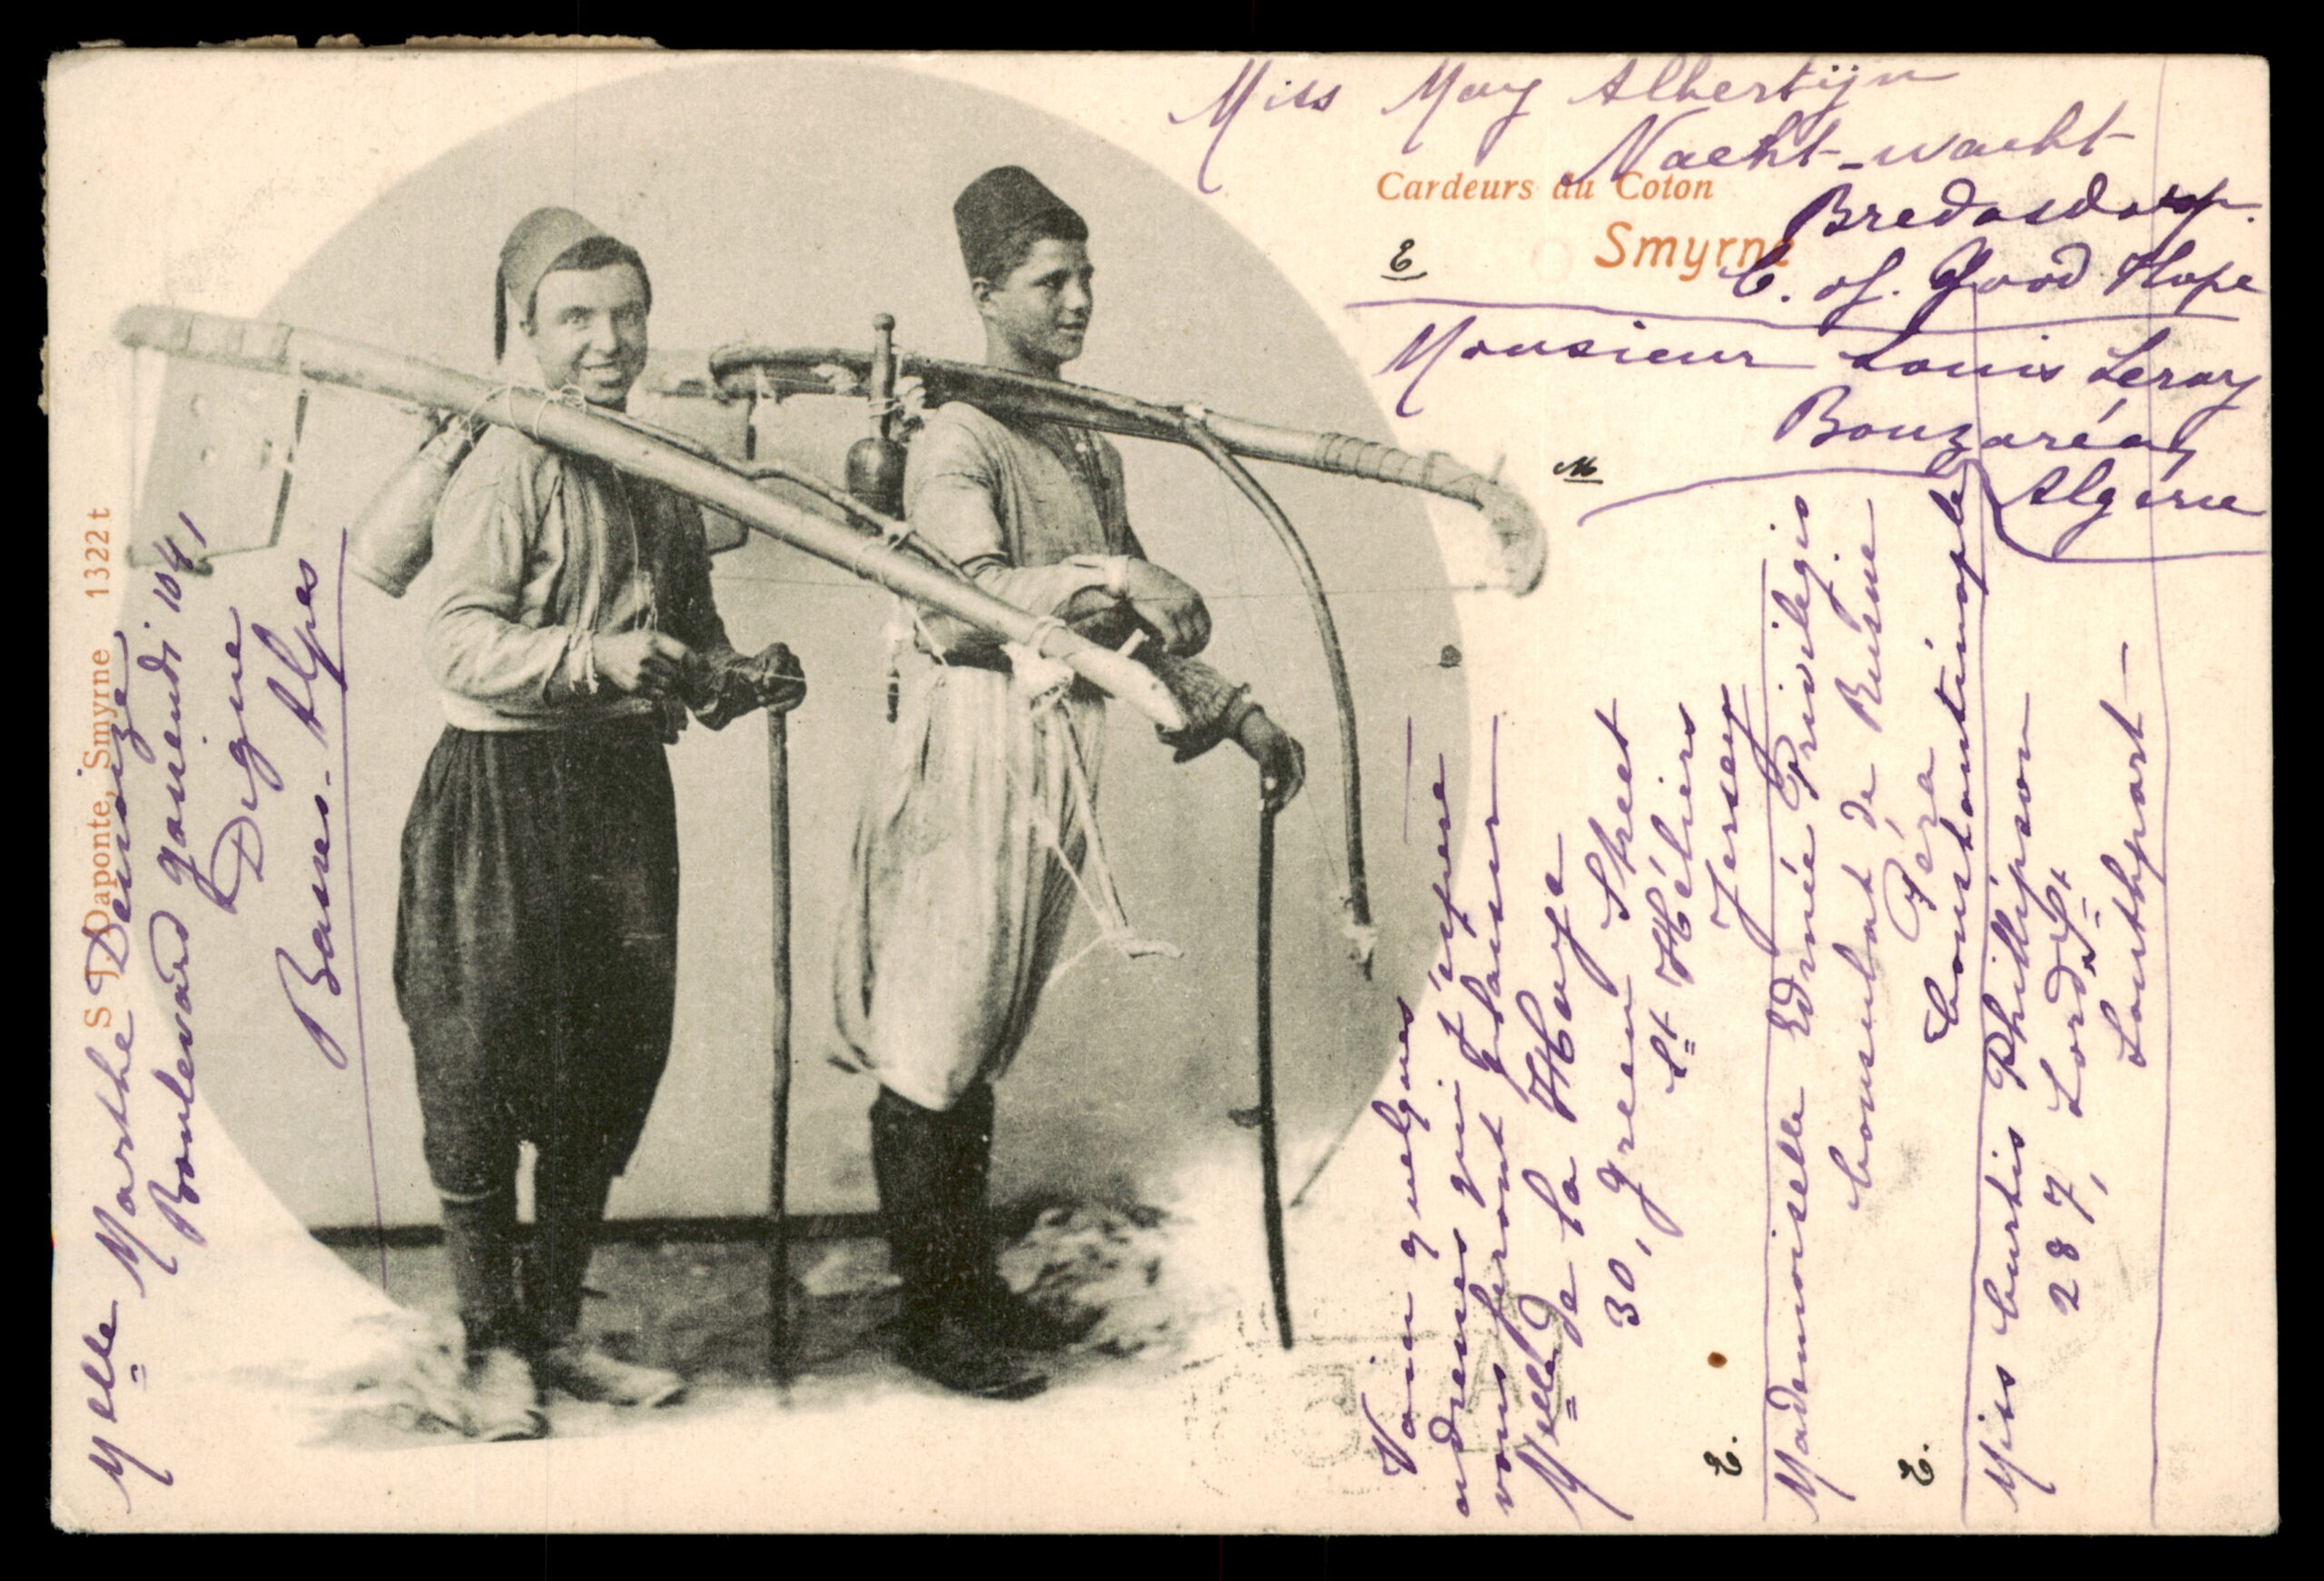 Miss May Albertijn
Nacht-wacht
Bredasdorp.
C. of. Good Hope
Cardeurs du Coton
Smyrne
E
Monsieur Louis Leroy
Bouzaréa,
Algérie
M
Voici quelques
adresses qui j'éspère
vous feront plaisir
Melle de la Haye
30, Green Street
St Héliers
Jersey
E.
Mademoiselle Edmée Privilegio
Consulat de Russie
Péra
Constantinople
E.
Miss Curtis Phillipson
287, Lord St
Southport
Melle Marthe
Boulevard Gassendi
Digne
Basses-Alpes
S J. Daponte, Smyrne 1322t